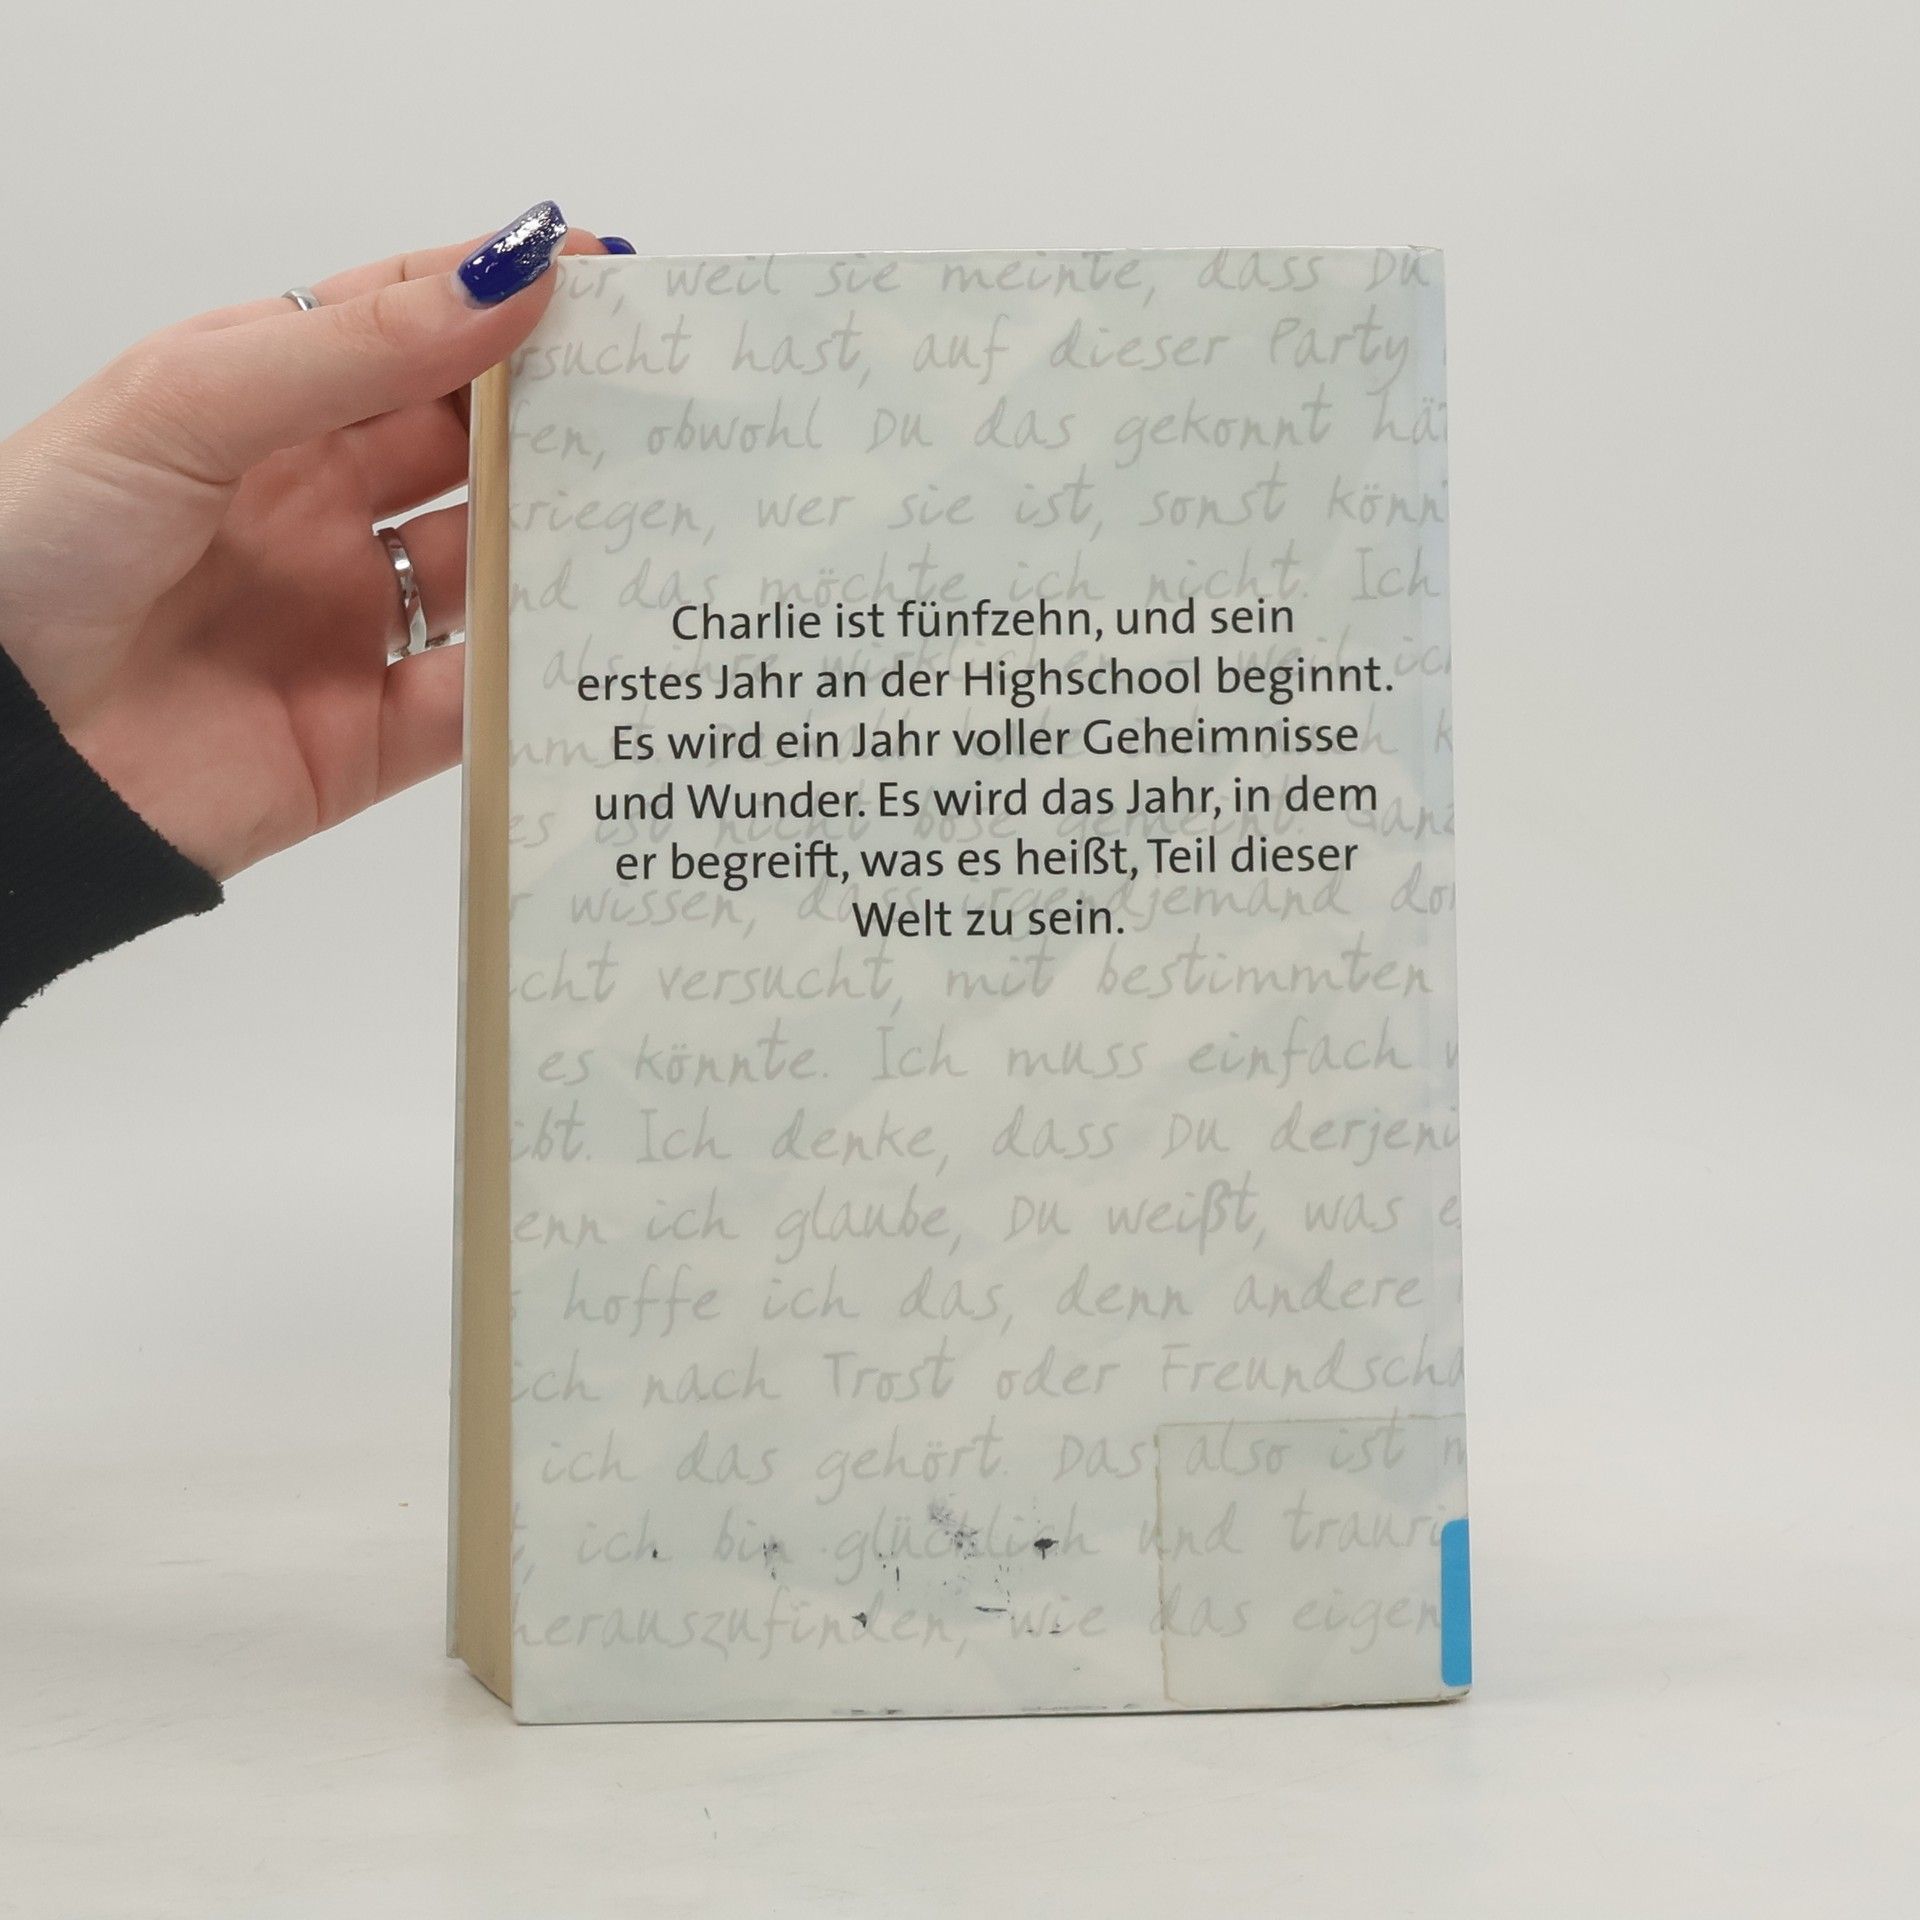 Dir, weil sie meinte, dass Du
rsucht hast, auf dieser Party
fen, obwohl Du das gekonnt hät
kriegen, wer sie ist, sonst könn
nd das möchte ich nicht. Ich
Charlie ist fünfzehn, und sein
als ihre wirklichen – weil ich
erstes Jahr an der Highschool beginnt.
Es wird ein Jahr voller Geheimnisse
und Wunder. Es wird das Jahr, in dem
es ist nicht böse gemeint. Ganz
er begreift, was es heißt, Teil dieser
r wissen, dass irgendjemand do
Welt zu sein.
icht versucht, mit bestimmten
es könnte. Ich muss einfach
ibt. Ich denke, dass Du derjeni
enn ich glaube, Du weißt, was e
hoffe ich das, denn andere
ich nach Trost oder Freundscha
ich das gehört. Das also ist m
t, ich bin glücklich und trauri
herauszufinden, wie das eigen